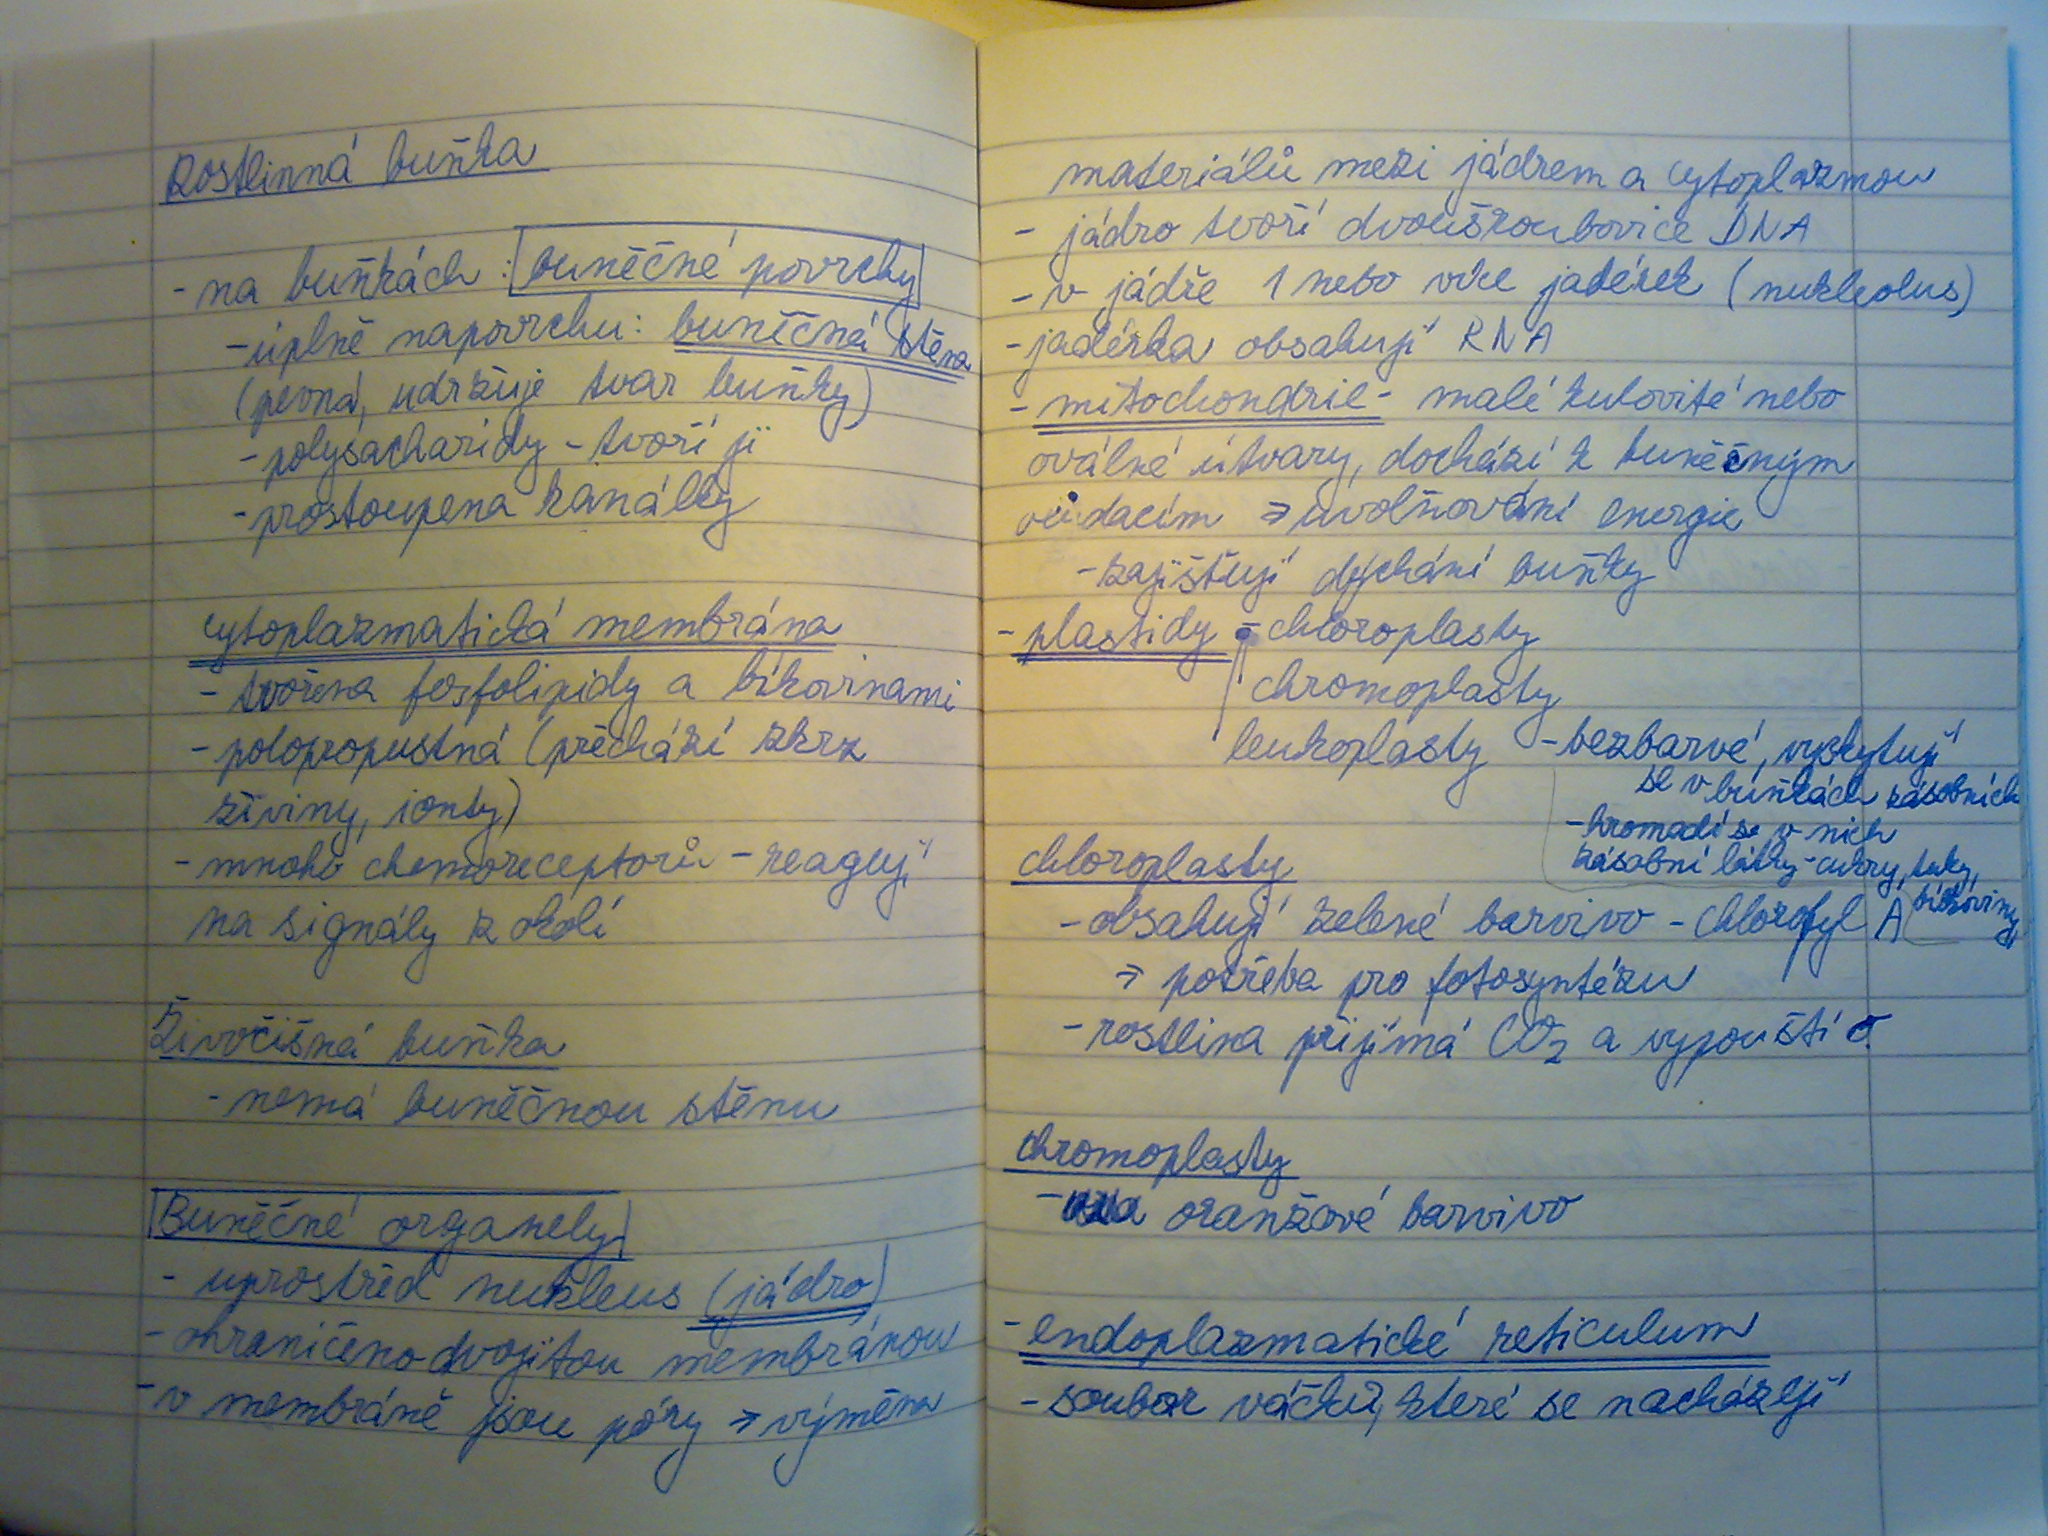 Rostlinná buňka
- na buňkách : buněčné povrchy
- úplně napovrchu: buněčná stěna
(pevná, udržuje tvar buňky)
- polysacharidy - tvoří ji
- prostoupena kanálky
cytoplazmatická membrána
- tvořena fosfolipidy a bílkovinami
- polopropustná (přechází skrz
živiny, ionty)
- mnoho chemoreceptorů - reagují
na signály z okolí
Živočišná buňka
- nemá buněčnou stěnu
Buněčné organely
- uprostřed nukleus (jádro)
- ohraničeno dvojitou membránou
- v membráně jsou póry → výměna
materiálů mezi jádrem a cytoplazmou
- jádro tvoří dvoušroubovice DNA
- v jádře 1 nebo více jadérek (nukleolus)
- jadérka obsahují RNA
- mitochondrie - malé kulovité nebo
oválné útvary, dochází k buněčným
oxidacím → uvolňování energie
- zajištují dýchání buňky
- plastidy - chloroplasty
chromoplasty
leukoplasty - bezbarvé, vyskytují
se v buňkách zásobních
- hromadí se v nich
zásobní látky - cukry, tuky,
bílkoviny
chloroplasty
- obsahují zelené barvivo - chlorofyl A
→ potřeba pro fotosyntézu
- rostlina přijímá CO₂ a vypouští O
chromoplasty
- oranžové barvivo
- endoplazmatické reticulum
- soubor váčků, které se nacházejí